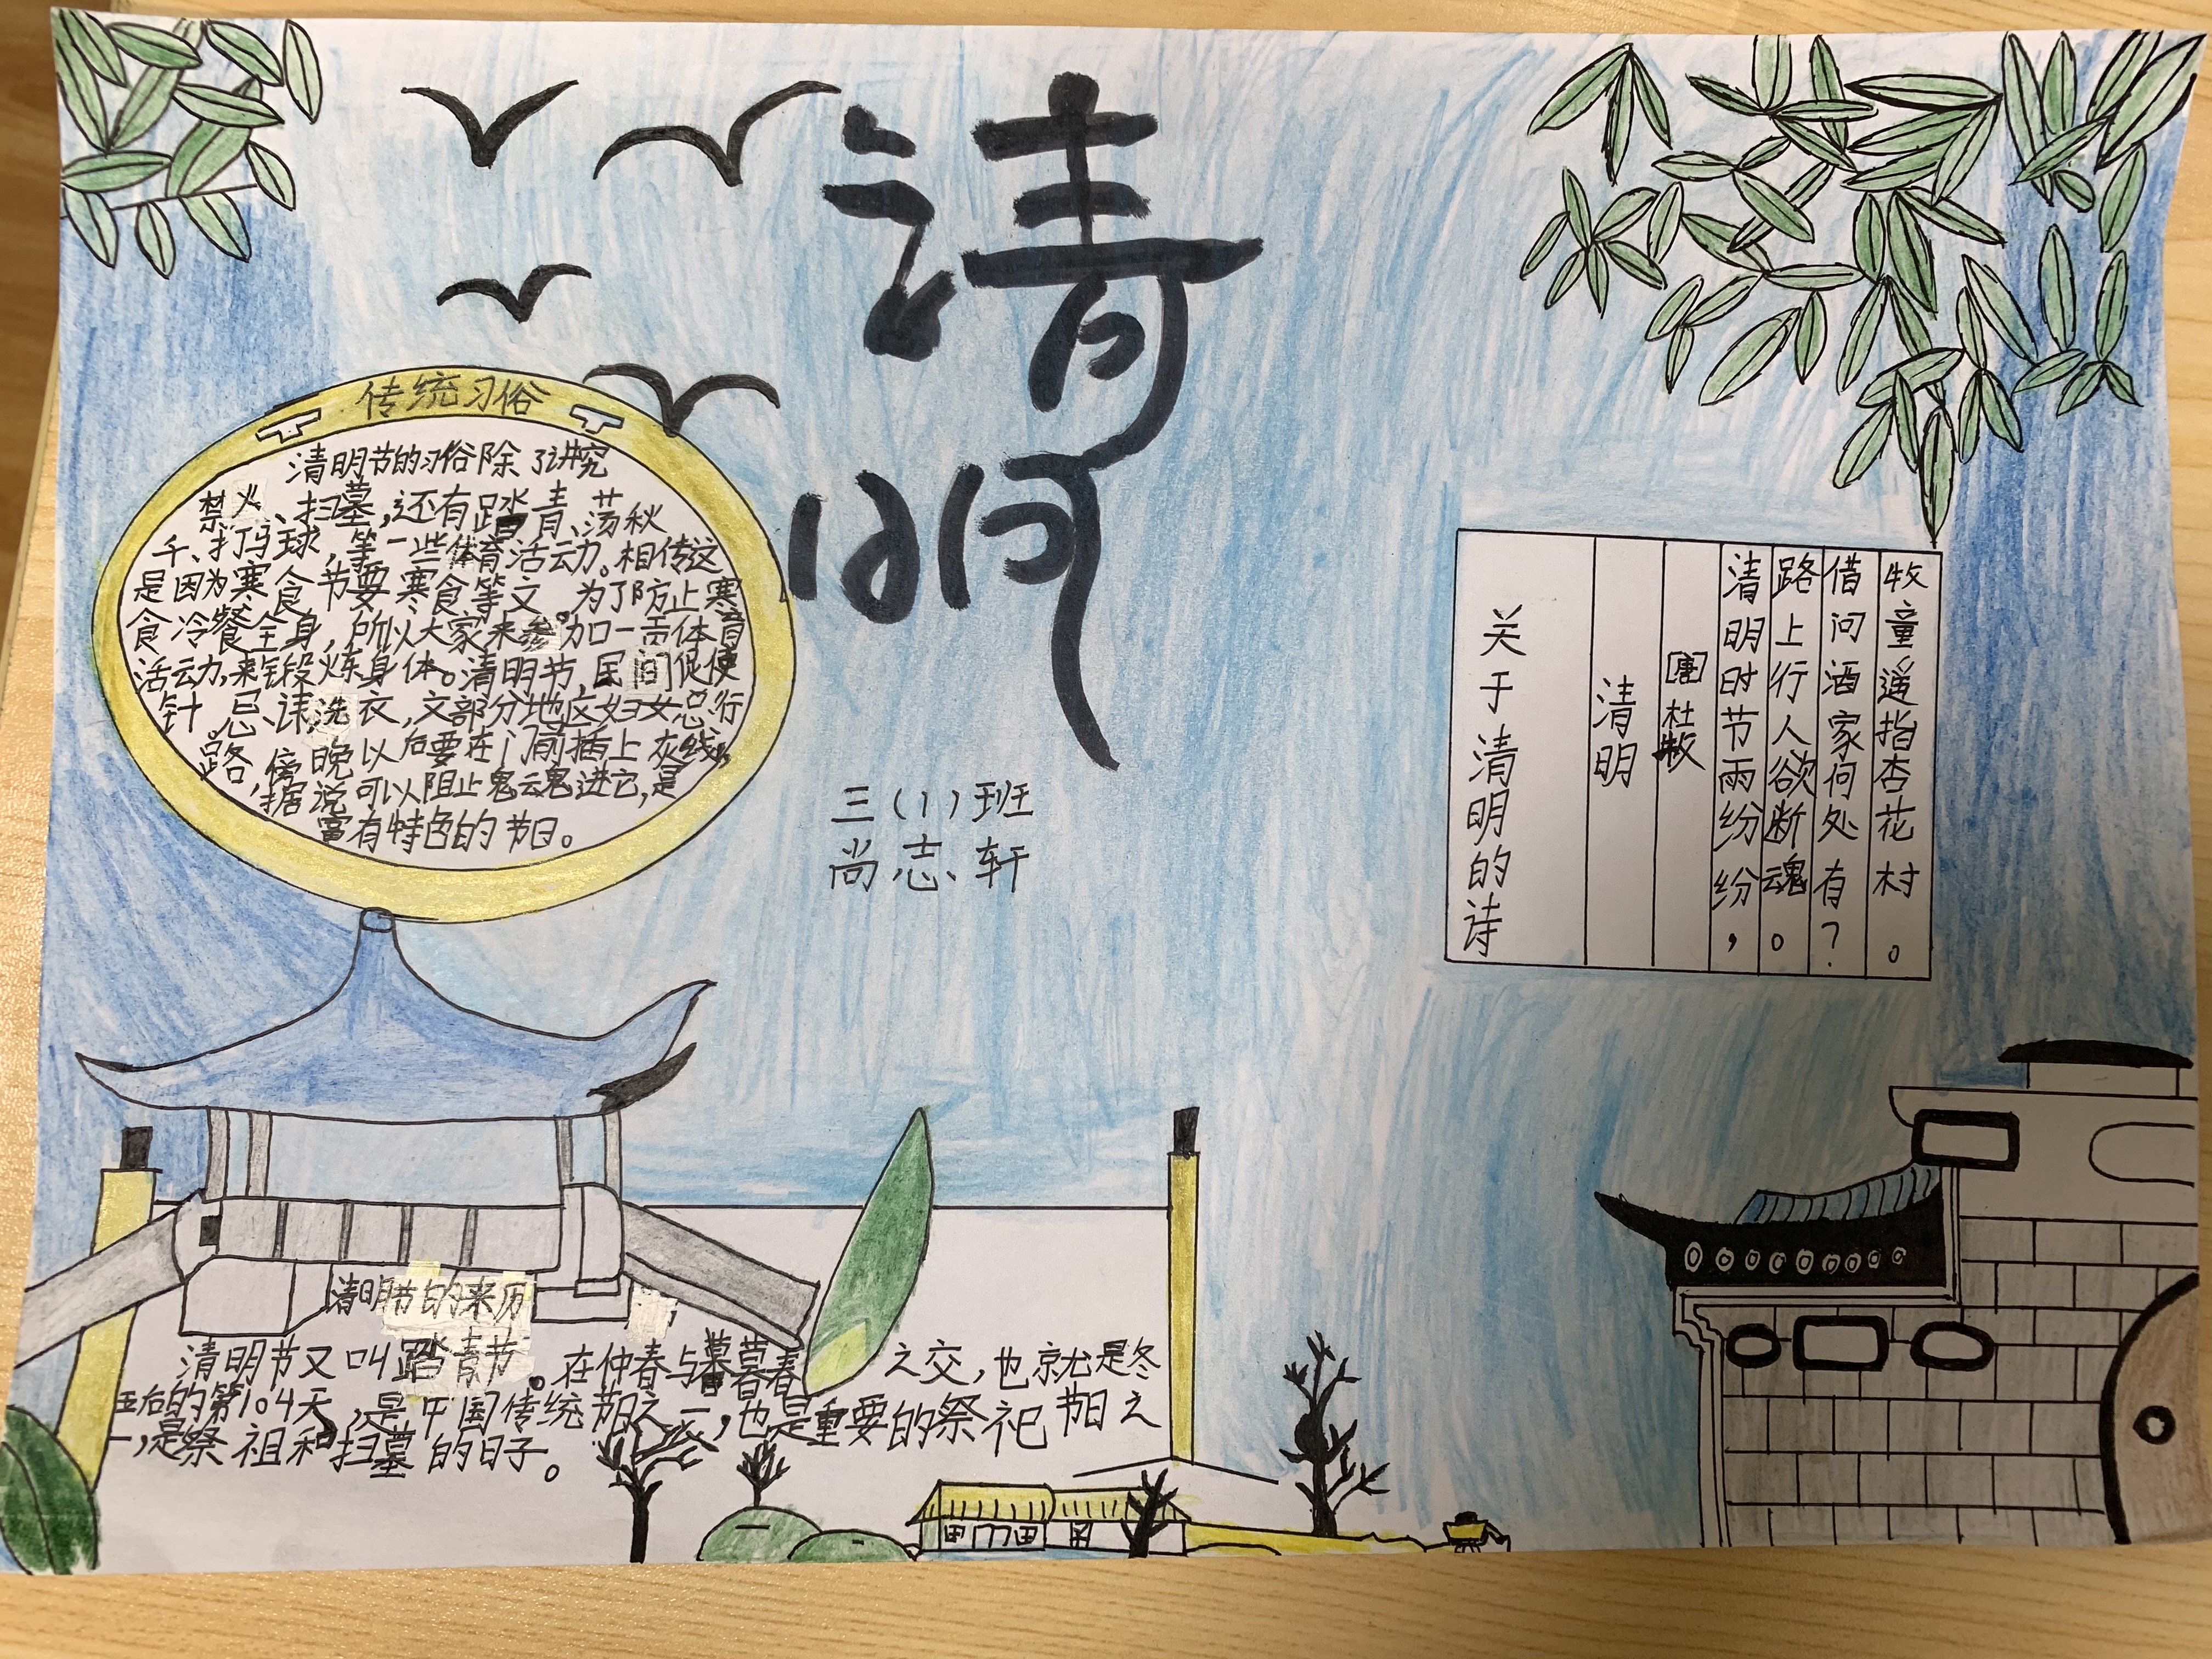 清明
三(1)班
尚志轩
传统习俗
清明节的习俗除了讲究
禁火、扫墓,还有踏青、荡秋
千、打马球,等一些体育活动。相传这
是因为寒食节要寒食等文。为了防止寒
食冷餐全身,所以大家来参加一贡体育
活动,来锻炼身体。清明节,民间促使
针 忌、讳洗衣,文部分地区妇女忌行
路,傍晚以后要在门前插上灰线,
据说可以阻止鬼魂进它,是
富有特色的节日。
关于清明的诗
清明
[唐]杜牧
清明时节雨纷纷,
路上行人欲断魂。
借问酒家何处有?
牧童遥指杏花村。
清明节的来历
清明节又叫踏青节。在仲春与暮春之交,也就是冬
至后的第104天,是中国传统节日之一,也是重要的祭祀节日之
一,是祭祖和扫墓的日子。